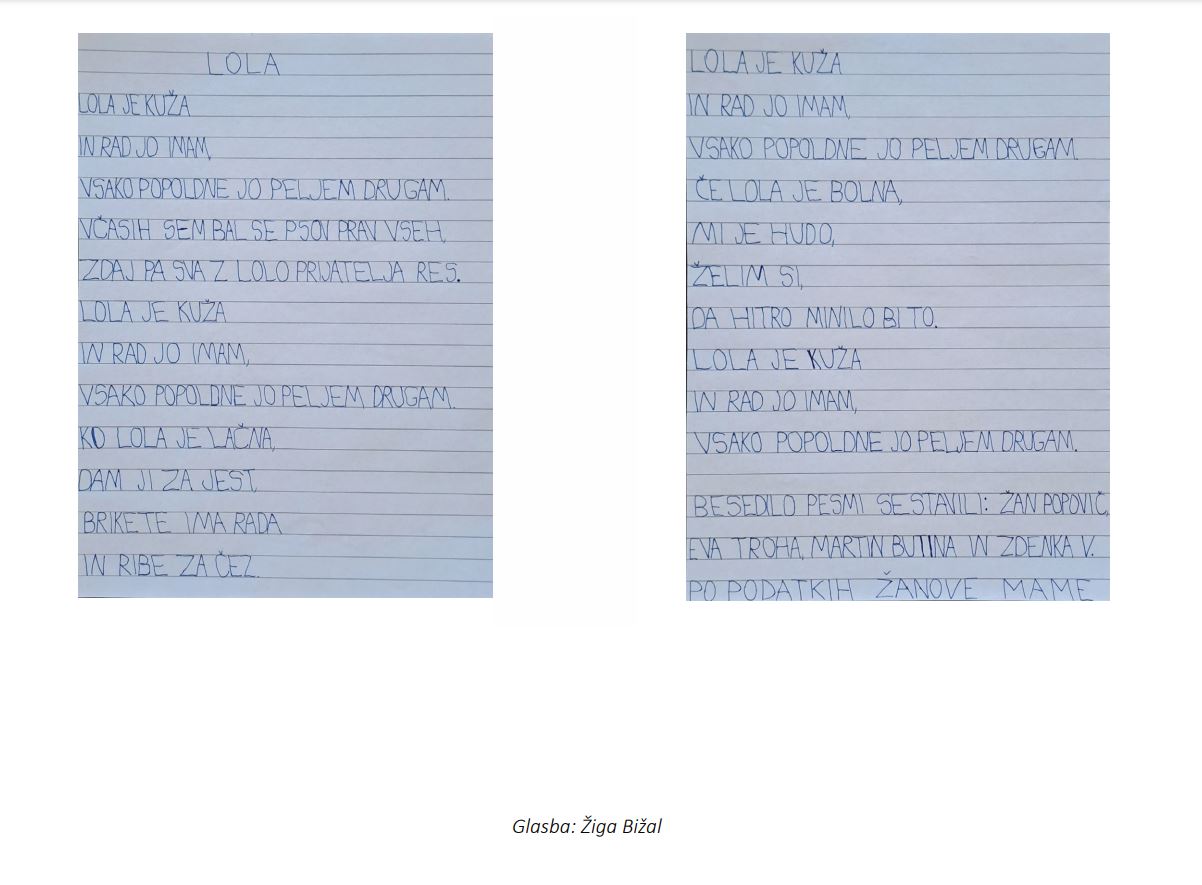 LOLA
LOLA JE KUŽA
IN RAD JO IMAM,
VSAKO POPOLDNE JO PELJEM DRUGAM.
VČASIH SEM BAL SE PSOV PRAV VSEH,
ZDAJ PA SVA Z LOLO PRIJATELJA RES.
LOLA JE KUŽA
IN RAD JO IMAM,
VSAKO POPOLDNE JO PELJEM DRUGAM.
KO LOLA JE LAČNA,
DAM JI ZA JEST,
BRIKETE IMA RADA
IN RIBE ZA ČEZ.
LOLA JE KUŽA
IN RAD JO IMAM,
VSAKO POPOLDNE JO PELJEM DRUGAM.
ČE LOLA JE BOLNA,
MI JE HUDO,
ŽELIM SI,
DA HITRO MINILO BI TO.
LOLA JE KUŽA
IN RAD JO IMAM,
VSAKO POPOLDNE JO PELJEM DRUGAM.
BESEDILO PESMI SESTAVILI: ŽAN POPOVIČ,
EVA TROHA, MARTIN BUTINA IN ZDENKA V.
PO PODATKIH ŽANOVE MAME
Glasba: Žiga Bižal